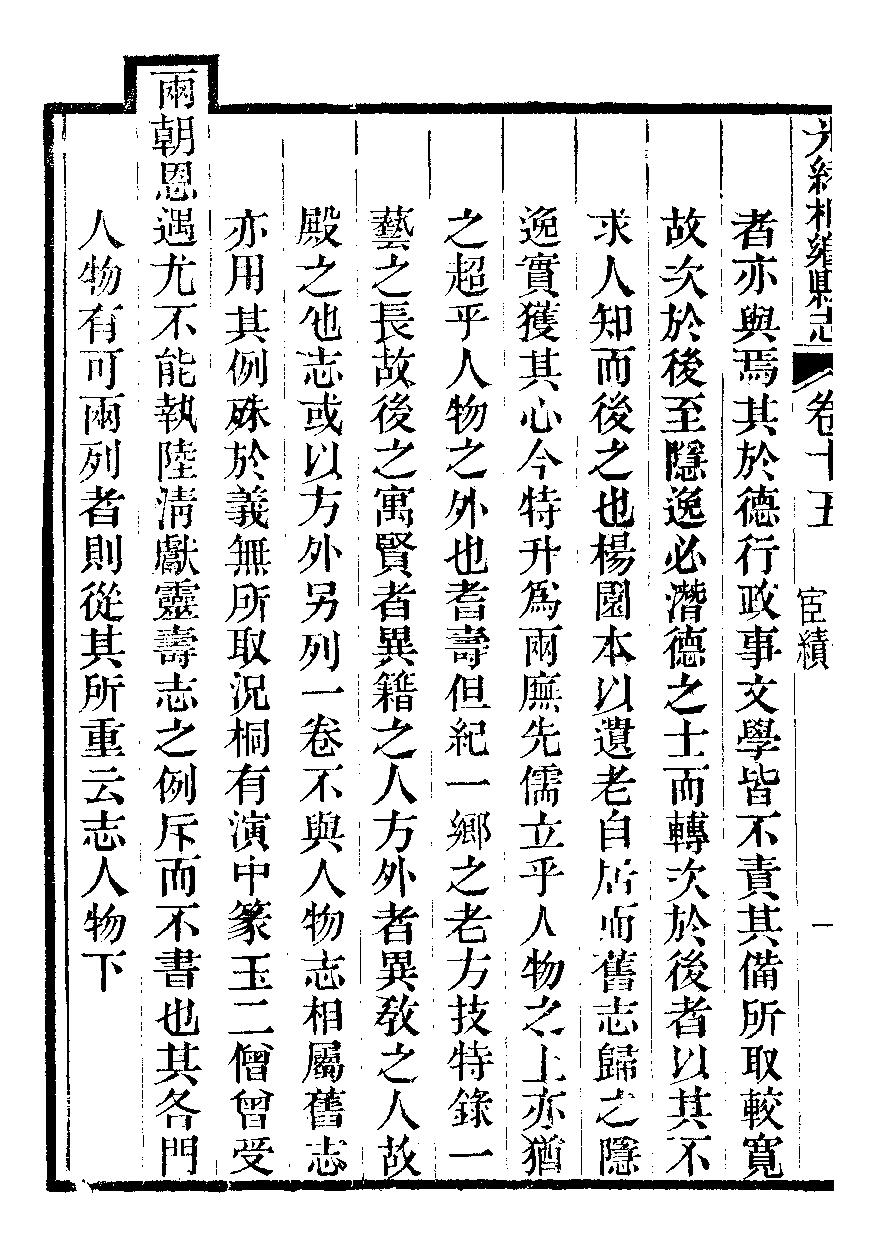 光緒桐鄉縣志 卷十五 宦績 一
者亦與焉其於德行政事文學皆不責其備所取較寬
故次於後至隱逸必潛德之士而轉次於後者以其不
求人知而後之也楊園本以遺老自居而舊志歸之隱
逸實獲其心今特升爲兩廡先儒立乎人物之上亦猶
之超乎人物之外也耆壽但紀一鄉之老方技特錄一
藝之長故後之寓賢者異籍之人方外者異敎之人故
殿之他志或以方外另列一卷不與人物志相屬舊志
亦用其例殊於義無所取況桐有演中篆玉二僧曾受
兩朝恩遇尤不能執陸淸獻靈壽志之例斥而不書也其各門
人物有可兩列者則從其所重云志人物下